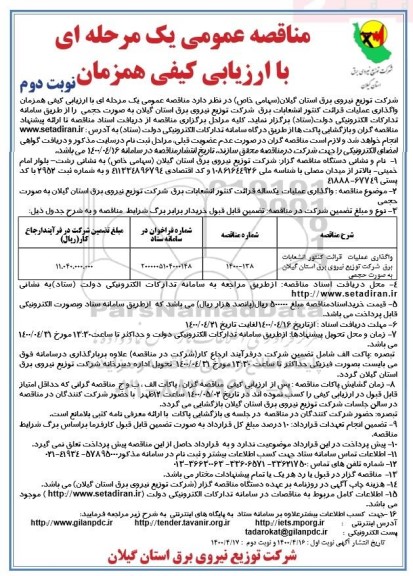 مناقصه عمومی یک مرحله ای
با ارزیابی کیفی همزمان
نوبت دوم
شرکت توزیع نیروی برق
استان گیلان
شرکت توزیع نیروی برق استان گیلان(سهامی خاص) در نظر دارد مناقصه عمومی یک مرحله ای با ارزیابی کیفی همزمان
واگذاری عملیات قرائت کنتور انشعابات برق شرکت توزیع نیروی برق استان گیلان به صورت حجمی را از طریق سامانه
تدارکات الکترونیکی دولت(ستاد) برگزار نماید. کلیه مراحل برگزاری مناقصه از دریافت اسناد مناقصه تا ارائه پیشنهاد
مناقصه گران و بازگشایی پاکت ها از طریق درگاه سامانه تدارکات الکترونیکی دولت (ستاد) به آدرس : www.setadiran.ir
انجام خواهد شد و لازم است مناقصه گران در صورت عدم عضویت قبلی، مراحل ثبت نام در سایت مذکور و دریافت گواهی
امضای الکترونیکی را جهت شرکت در مناقصه محقق سازند. تاریخ انتشار مناقصه در سامانه ۱۴۰۰/۰۴/۱۶ می باشد.
۱- نام و نشانی دستگاه مناقصه گزار: شرکت توزیع نیروی برق استان گیلان (سهامی خاص) به نشانی رشت- بلوار امام
خمینی- بالاتر از میدان مصلی با شناسه ملی ۱۰۸۶۱۶۴۴۹۲۶ و کد اقتصادی ۴۱۱۳۳۴۸۹۶۷۹۴ و به شماره ثبت ۲۹۵۲ با کد
پستی ۶۷۷۴۹-۴۱۸۸۸
۲- موضوع مناقصه : واگذاری عملیات یکساله قرائت کنتور انشعابات برق شرکت توزیع نیروی برق استان گیلان به صورت
حجمی
۳- نوع و مبلغ تضمین شرکت در مناقصه: تضمین قابل قبول خریدار برابر برگ شرایط مناقصه و به شرح جدول ذیل:
شرح مناقصه
شماره مناقصه
شماره فراخوان در سامانه ستاد
مبلغ تضمین شرکت در فرآیند ارجاع کار(ریال)
واگذاری عملیات قرائت کنتور انشعابات
برق شرکت توزیع نیروی برق استان گیلان
به صورت حجمی
۱۴۰۰-۱۳۸
۲۰۰۰۰۰۵۱۰۴۰۰۰۱۴۸
۱۱,۰۴۰,۰۰۰,۰۰۰
۴- محل دریافت اسناد مناقصه: از طریق مراجعه به سامانه تدارکات الکترونیکی دولت (ستاد)به نشانی
http://www.setadiran.ir
۵- قیمت خرید اسناد مناقصه مبلغ ۵۰۰۰۰۰ ریال(پانصد هزار ریال) می باشد که از طریق سامانه ستاد و بصورت الکترونیکی
قابل پرداخت می باشد.
۶- مهلت دریافت اسناد : از تاریخ ۱۴۰۰/۰۴/۱۶ لغایت تاریخ ۱۴۰۰/۰۴/۲۱
۷- زمان و محل تحویل پیشنهادها: از طریق سامانه تدارکات الکترونیکی دولت و حداکثر تا ساعت ۱۲:۳۰ مورخ ۱۴۰۰/۰۴/۳۱
تبصره :پاکت الف شامل تضمین شرکت در فرآیند ارجاع کار(شرکت در مناقصه) علاوه بر بارگذاری در سامانه فوق
می بایست بصورت فیزیکی حداکثر تا ساعت ۱۳:۳۰ مورخ ۱۴۰۰/۰۴/۳۱ تحویل اداره دبیرخانه شرکت توزیع نیروی برق
استان گیلان گردد.
۹- تضمین انجام تعهدات قرارداد: ۱۰ درصد مبلغ کل قرارداد به صورت تضمین قابل قبول کارفرما براساس برگ شرایط
مناقصه.
۱۰- پیش پرداخت در این قرارداد موضوعیت ندارد و به قرارداد حاصل از این مناقصه پیش پرداخت تعلق نمی گیرد.
۱۱- اطلاعات تماس سامانه ستاد جهت کسب اطلاعات بیشتر و ثبت نام در سامانه مذکور:
۱۲- شماره تلفن های تماس :
۱۳- مناقصه گزار در قبول یا رد هر یک یا تمام پیشنهادات مختار می باشد.
۱۴- هزینه چاپ آگهی در روزنامه بر عهده دستگاه مناقصه گزار (شرکت توزیع نیروی برق استان گیلان) می باشد.
۱۵- اطلاعات کامل مربوط به مناقصات در سامانه تدارکات الکترونیکی دولت ( http://www.setadiran.ir ) موجود
می باشد.
۱۶-جهت کسب اطلاعات بیشتر علاوه بر سامانه ستاد به پایگاه های اینترنتی به شرح زیر مراجعه فرمایید:
آدرس اینترنتی : http://iets.mporg.ir http://tender.tavanir.org.ir http://www.gilanpdc.ir
پست الکترونیکی : tadarokat@gilanpdc.ir
تاریخ انتشار آگهی نوبت اول : ۱۴۰۰/۴/۱۶ و نوبت دوم : ۱۴۰۰/۴/۱۷
شرکت توزیع نیروی برق استان گیلان